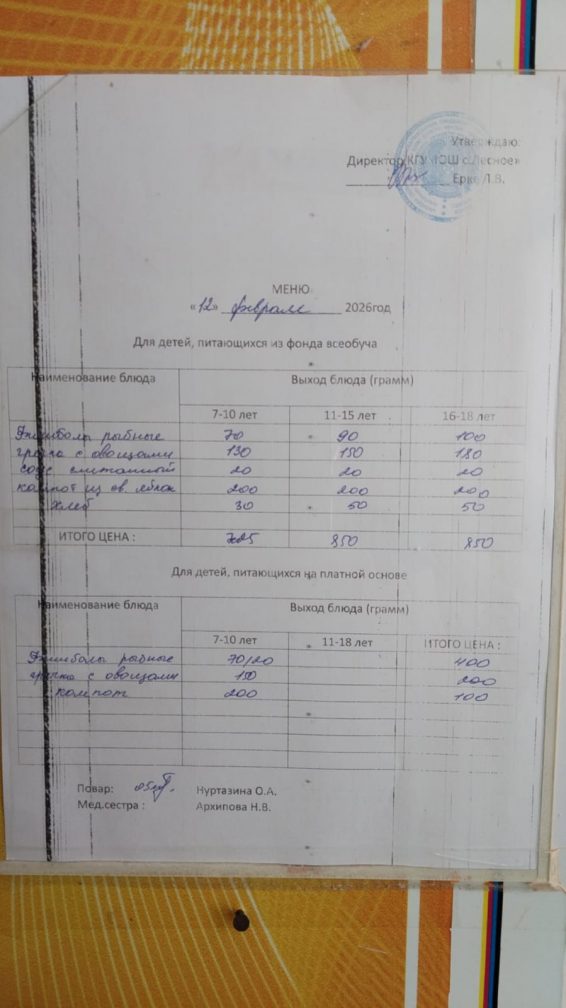 Утверждаю:
Директор КГУ «ОШ с.Лесное»
Ерке Л.В.
МЕНЮ
«12» февраля 2026год
Для детей, питающихся из фонда всеобуча
Наименование блюда Выход блюда (грамм)
7-10 лет 11-15 лет 16-18 лет
Фишболы рыбные 70 90 100
гречка с овощами 130 150 180
соус сметанный 20 20 20
компот из св. яблок 200 200 200
хлеб 30 50 50
ИТОГО ЦЕНА : 725 850 850
Для детей, питающихся на платной основе
Наименование блюда Выход блюда (грамм)
7-10 лет 11-18 лет ИТОГО ЦЕНА :
Фишболы рыбные 70/20 400
гречка с овощами 150 200
компот 200 100
Повар: Нуртазина О.А.
Мед.сестра : Архипова Н.В.